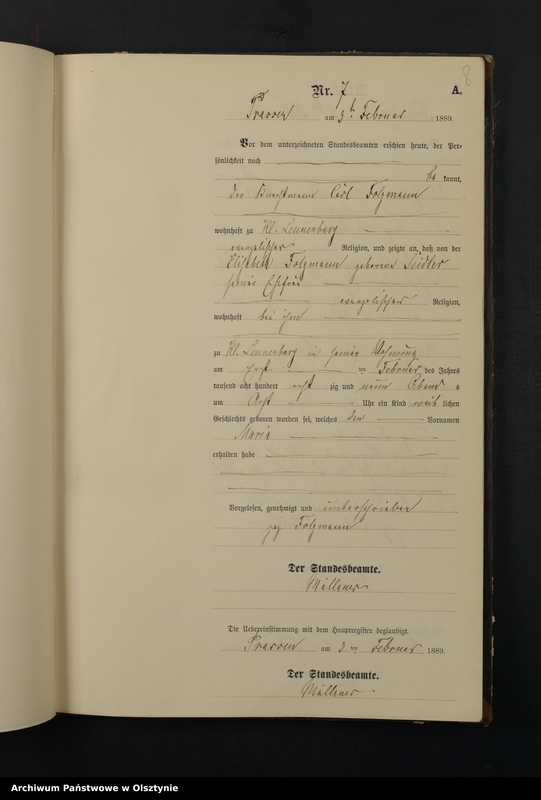 8
Nr. 7 A.
Prassen am 3t Februar 1889.
Vor dem unterzeichneten Standesbeamten erschien heute, der Per-
sönlichkeit nach
be kannt,
der Carl Folgmann
wohnhaft zu Kl. Leunenberg
evangelischer Religion, und zeigte an, daß von der
Elisabeth Folgmann geborene Seidler
seiner Ehefrau
evangelischer Religion,
wohnhaft bei ihm
zu Kl. Leunenberg in seiner Wohnung
am ten Februar des Jahres
tausend acht hundert acht zig und neun Abend s
um Acht Uhr ein Kind weib lichen
Geschlechts geboren worden sei, welches den Vornamen
Maria
erhalten habe
Vorgelesen, genehmigt und unterschrieben
gez Folgmann
Der Standesbeamte.
Müllner
Die Uebereinstimmung mit dem Hauptregister beglaubigt.
Prassen am 3 ten Februar 1889.
Der Standesbeamte.
Müllner
Archiwum Państwowe w Olsztynie